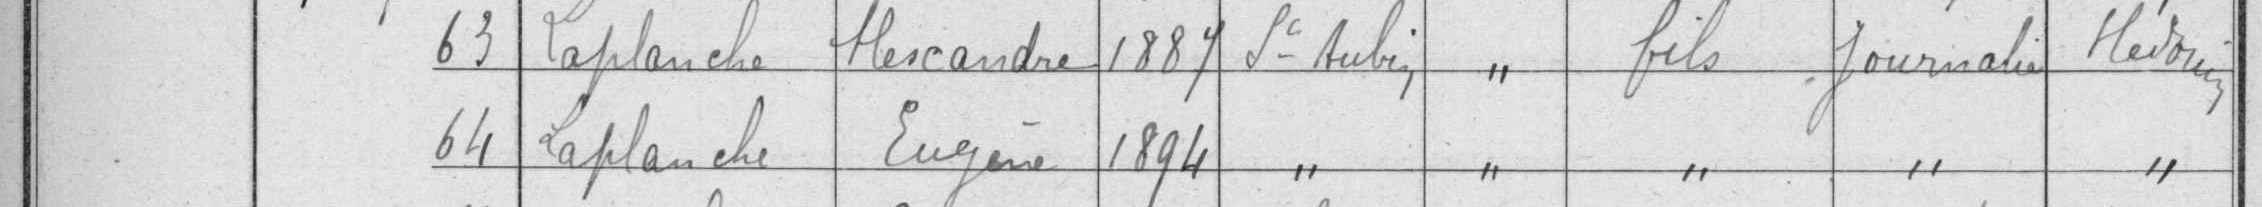 63 Laplanche Alescandre 1887 St Aubin " fils Journalier Hedouin
64 Laplanche Eugène 1894 " " " " "